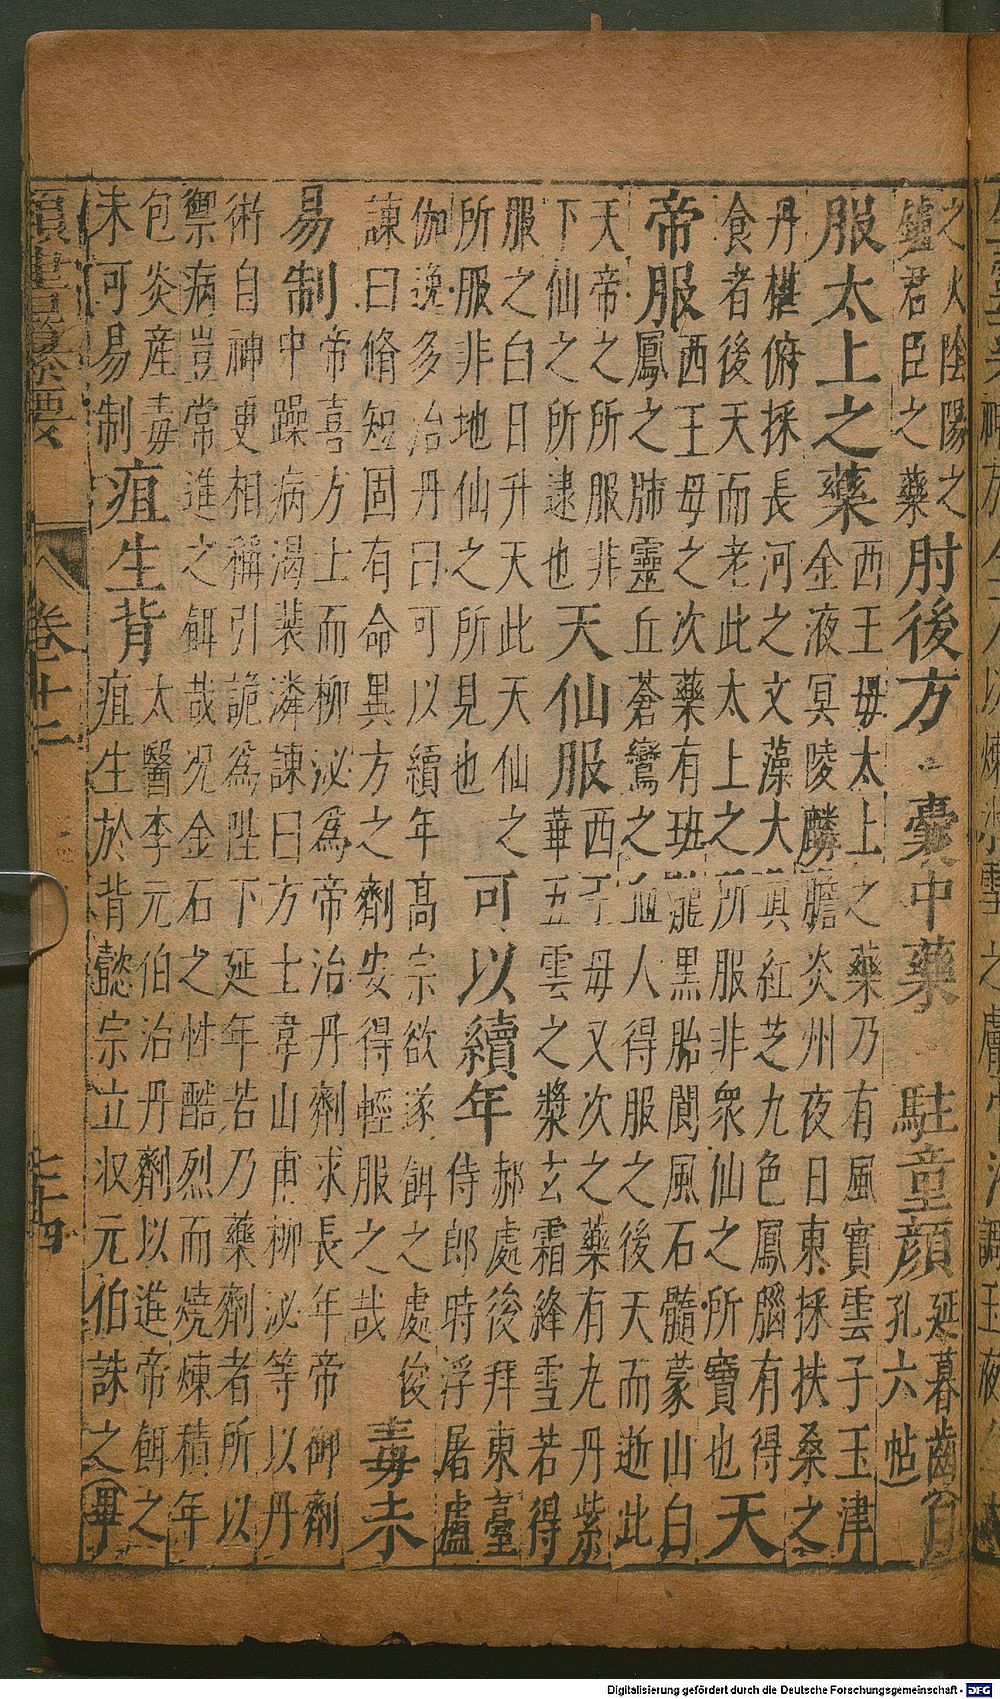 之火陰陽之
鑪君臣之藥
肘後方、囊中藥、駐童顏
延暮齒(百
孔六帖)
服太上之藥
西王母太上之藥乃有風實雲子玉津
金液冥陵麟膽炎州夜日東採扶桑之
丹椹俯採長河之文藻大真紅芝九色鳳腦有得
食者後天而老此太上之所服非衆仙之所寶也
天
帝服
西王母之次藥有班龍黑胎閬風石髓蒙山白
鳳之肺靈丘蒼鸞之血人得服之後天而逝此
天帝之所服非
下仙之所逮也
天仙服
西王母又次之藥有九丹紫
華五雲之漿玄霜絳雪若得
服之白日升天此天仙之
所服非地仙之所見也
可以續年
郝處後拜東臺
侍郎時浮屠盧
伽逸多治丹曰可以續年髙宗欲遂餌之處俊
諫曰脩短固有命異方之劑安得輕服之哉
毒未
易制
帝喜方士而柳泌爲帝治丹劑求長年帝御劑
中躁病渴裴潾諫曰方士韋山甫柳泌等以丹
術自神更相稱引詭爲陛下延年若乃藥劑者所以
禦病豈常進之餌哉况金石之性酷烈而燒煉積年
包炎産毒
未可易制
疽生背
太醫李元伯治丹劑以進帝餌之
疽生於背懿宗立収元伯誅之(毋
卷十二
七十四
Digitalisierung gefördert durch die Deutsche Forschungsgemeinschaft - DFG